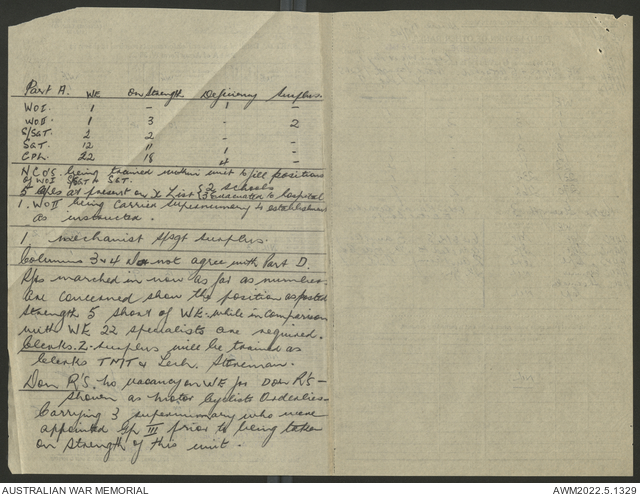 Part A. WE on Strength Deficiency Surplus
WOI. 1 - 1 -
WOII 1 3 - 2
S/SGT. 2 2 -
SGT. 12 11 1
CPL. 22 18 4
N.C.O's. being trained within unit to fill positions
of WOI S/SGT & SGT.
5 Cpls at present on X List { 2 schools
3 evacuated to hospital
1. WOII being carried supernumary to establishment
as instructed.
1 mechanist S/Sgt surplus.
Columns 3 & 4 do not agree with Part D.
Rfs marched in now as far as numbers
are concerned show the position as posted
strength 5 short of WE. while in comparison
with WE 22 specialists are required.
Clerks. 2. surplus will be trained as
Clerks TMT & Tech. Storeman.
Don R's. no vacancy on WE for Don R's -
Shown as Motor Cyclists Orderlies -
Carrying 3 supernumary who were
appointed Gp III prior to being taken
on strength of this unit.
AUSTRALIAN WAR MEMORIAL
AWM2022.5.1329